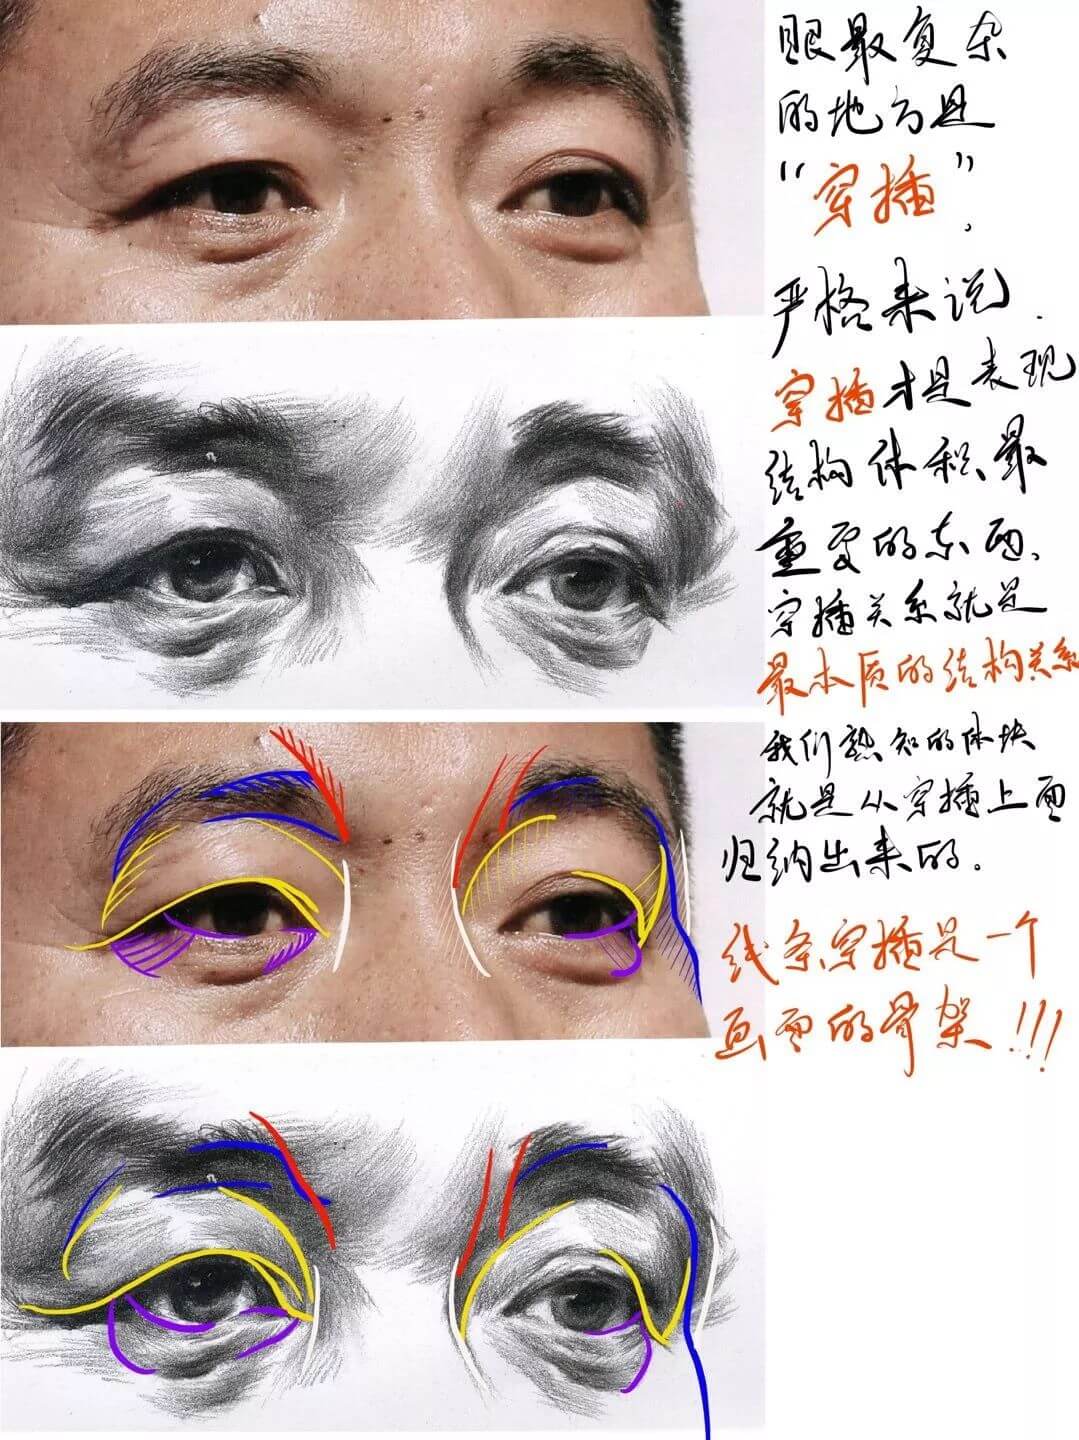 眼最复杂
的地方是
“穿插”，
严格来说.
穿插才是表现
结构体积最
重要的东西、
穿插关系就是
最本质的结构关系
我们熟知的体块
就是从穿插上面
归纳出来的.
线条穿插是一个
画面的骨架!!!